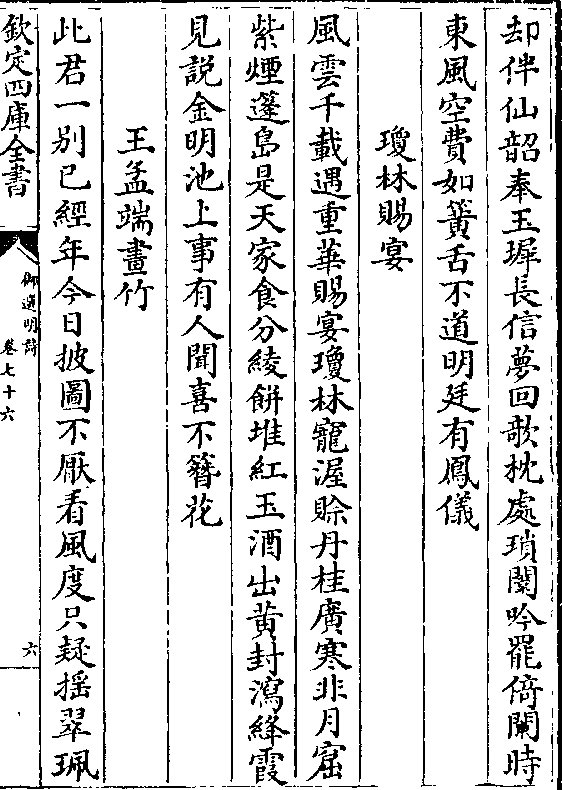 却伴仙韶奉玉墀長信夢回欹枕處瑣闈吟罷倚闌時
東風空費如簧舌不道明廷有鳳儀
瓊林賜宴
風雲千載遇重華賜宴瓊林寵渥賒丹桂廣寒非月窟
紫煙蓬島是天家食分綾餅堆紅玉酒出黃封瀉絳霞
見説金明池上事有人聞喜不簪花
王孟端畫竹
此君一别已經年今日披圖不厭看風度只疑揺翠珮
欽定四庫全書
御選明詩
卷七十六
六